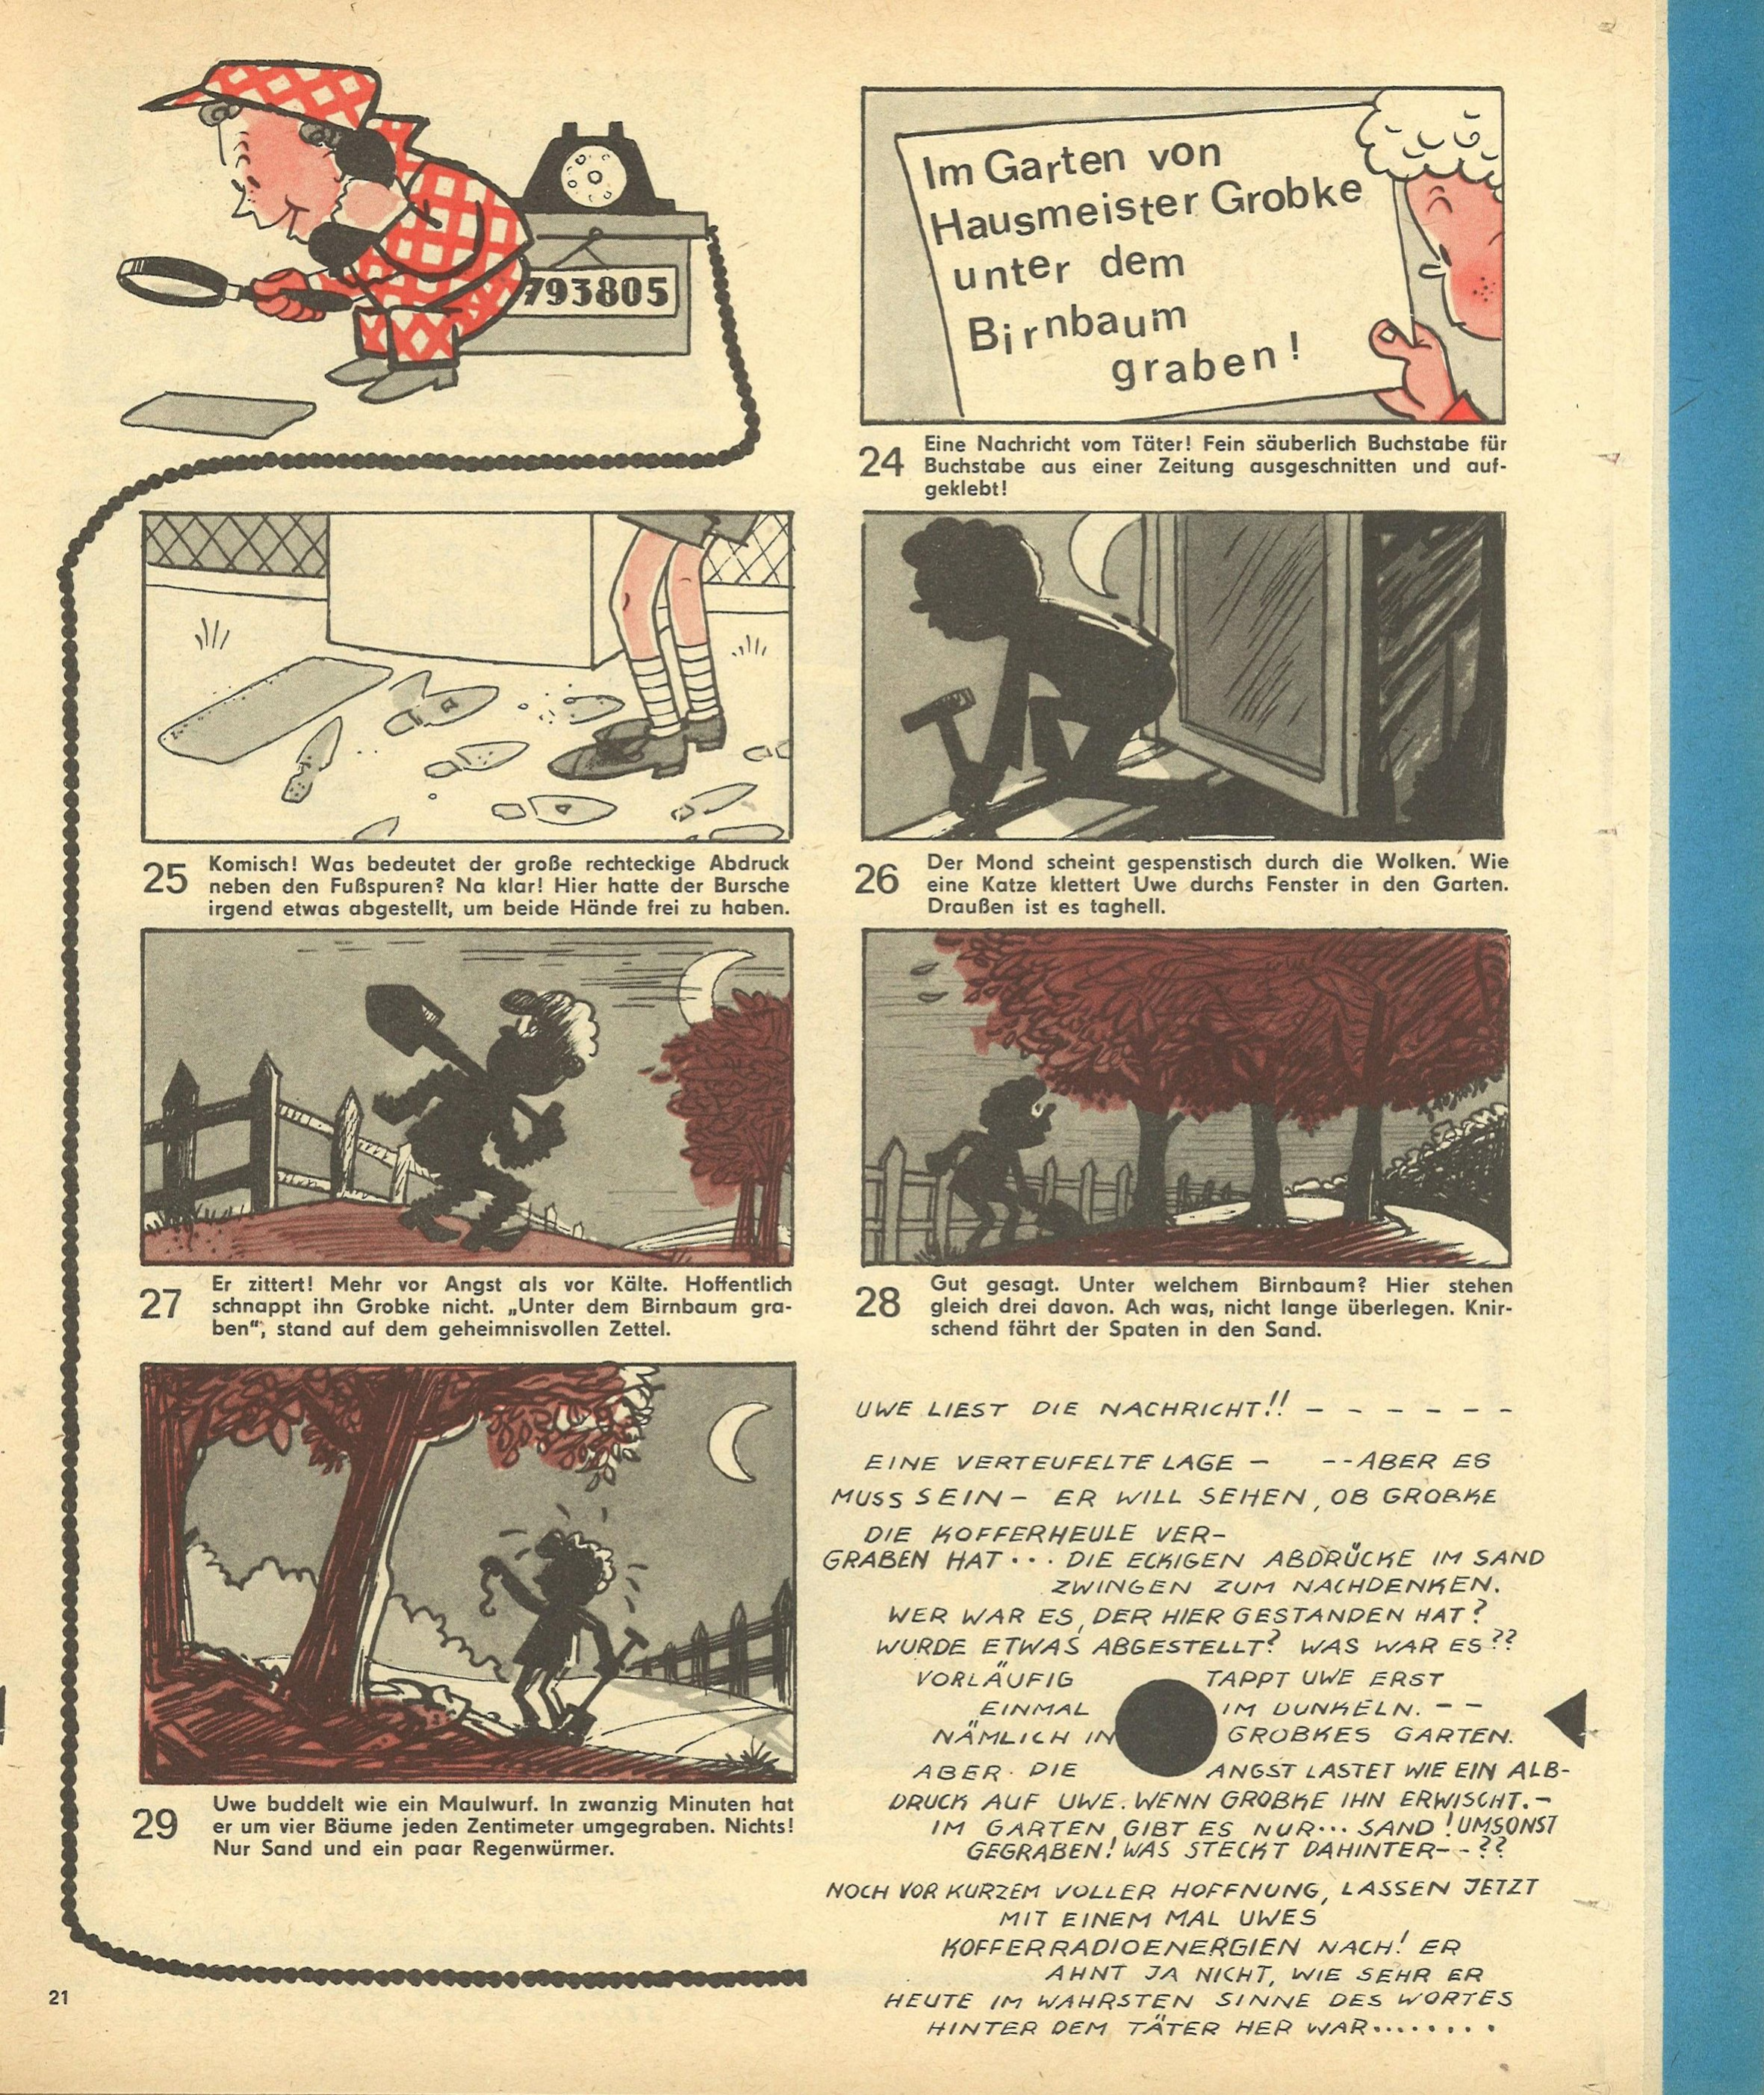 793805
Im Garten von
Hausmeister Grobke
unter dem
Birnbaum
graben!
24 Eine Nachricht vom Täter! Fein säuberlich Buchstabe für
Buchstabe aus einer Zeitung ausgeschnitten und auf-
geklebt!
25 Komisch! Was bedeutet der große rechteckige Abdruck
neben den Fußspuren? Na klar! Hier hatte der Bursche
irgend etwas abgestellt, um beide Hände frei zu haben.
26 Der Mond scheint gespenstisch durch die Wolken. Wie
eine Katze klettert Uwe durchs Fenster in den Garten.
Draußen ist es taghell.
27 Er zittert! Mehr vor Angst als vor Kälte. Hoffentlich
schnappt ihn Grobke nicht. „Unter dem Birnbaum gra-
ben“, stand auf dem geheimnisvollen Zettel.
28 Gut gesagt. Unter welchem Birnbaum? Hier stehen
gleich drei davon. Ach was, nicht lange überlegen. Knir-
schend fährt der Spaten in den Sand.
29 Uwe buddelt wie ein Maulwurf. In zwanzig Minuten hat
er um vier Bäume jeden Zentimeter umgegraben. Nichts!
Nur Sand und ein paar Regenwürmer.
UWE LIEST DIE NACHRICHT!! – – – – – –
EINE VERTEUFELTE LAGE – --ABER ES
MUSS SEIN – ER WILL SEHEN, OB GROBKE
DIE KOFFERHEULE VER-
GRABEN HAT... DIE ECKIGEN ABDRÜCKE IM SAND
ZWINGEN ZUM NACHDENKEN.
WER WAR ES, DER HIER GESTANDEN HAT?
WURDE ETWAS ABGESTELLT? WAS WAR ES??
VORLÄUFIG TAPPT UWE ERST
EINMAL IM DUNKELN. – –
NÄMLICH IN GROBKES GARTEN.
ABER DIE ANGST LASTET WIE EIN ALB-
DRUCK AUF UWE. WENN GROBKE IHN ERWISCHT.–
IM GARTEN GIBT ES NUR... SAND! UMSONST
GEGRABEN! WAS STECKT DAHINTER--??
NOCH VOR KURZEM VOLLER HOFFNUNG, LASSEN JETZT
MIT EINEM MAL UWES
KOFFERRADIOENERGIEN NACH! ER
AHNT JA NICHT, WIE SEHR ER
HEUTE IM WAHRSTEN SINNE DES WORTES
HINTER DEM TÄTER HER WAR........
21